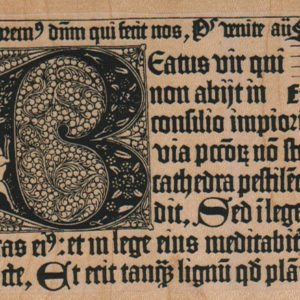 orem⁹ dñm qui fecit nos, Ps̄ venite
Beatus vir qui
non abijt in
consilio impior
via pccõꝝ nõ st
cathedra pestilẽ
dit, Sed ĩ lege
tas ei⁹: et in lege eius meditabit
cte, Et erit tanq̃ lignũ qd̃ plã